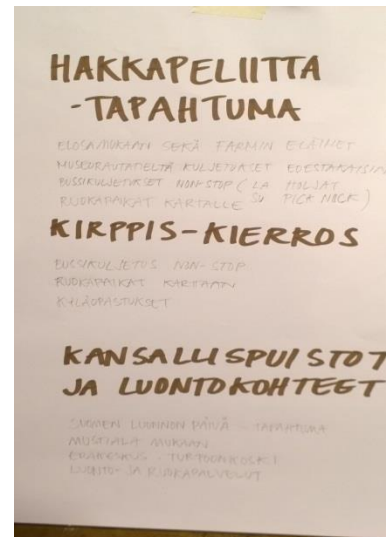 HAKKAPELIITTA
-TAPAHTUMA
ELOSAMUKAAN SEKÄ FARMIN ELÄIMET
MUSEORAUTATIELTÄ KULJETUKSET EDESTAKAISIN
BUSSIKULJETUKSET NON-STOP (LA
RUOKAPAIKAT KARTALLE SU PICK NICK)
KIRPPIS-KIERROS
BUSSIKULJETUS NON-STOP
RUOKAPAIKAT KARTAAN
KYLÄOPASTUKSET
KANSALLISPUISTOT
JA LUONTOKOHTEET
SUOMEN LUONNON PÄIVÄ - TAPAHTUMA
MUSTIALA MUKAAN
ERÄKESKUS - 
LUONTO- JA RUOKAPALVELUT